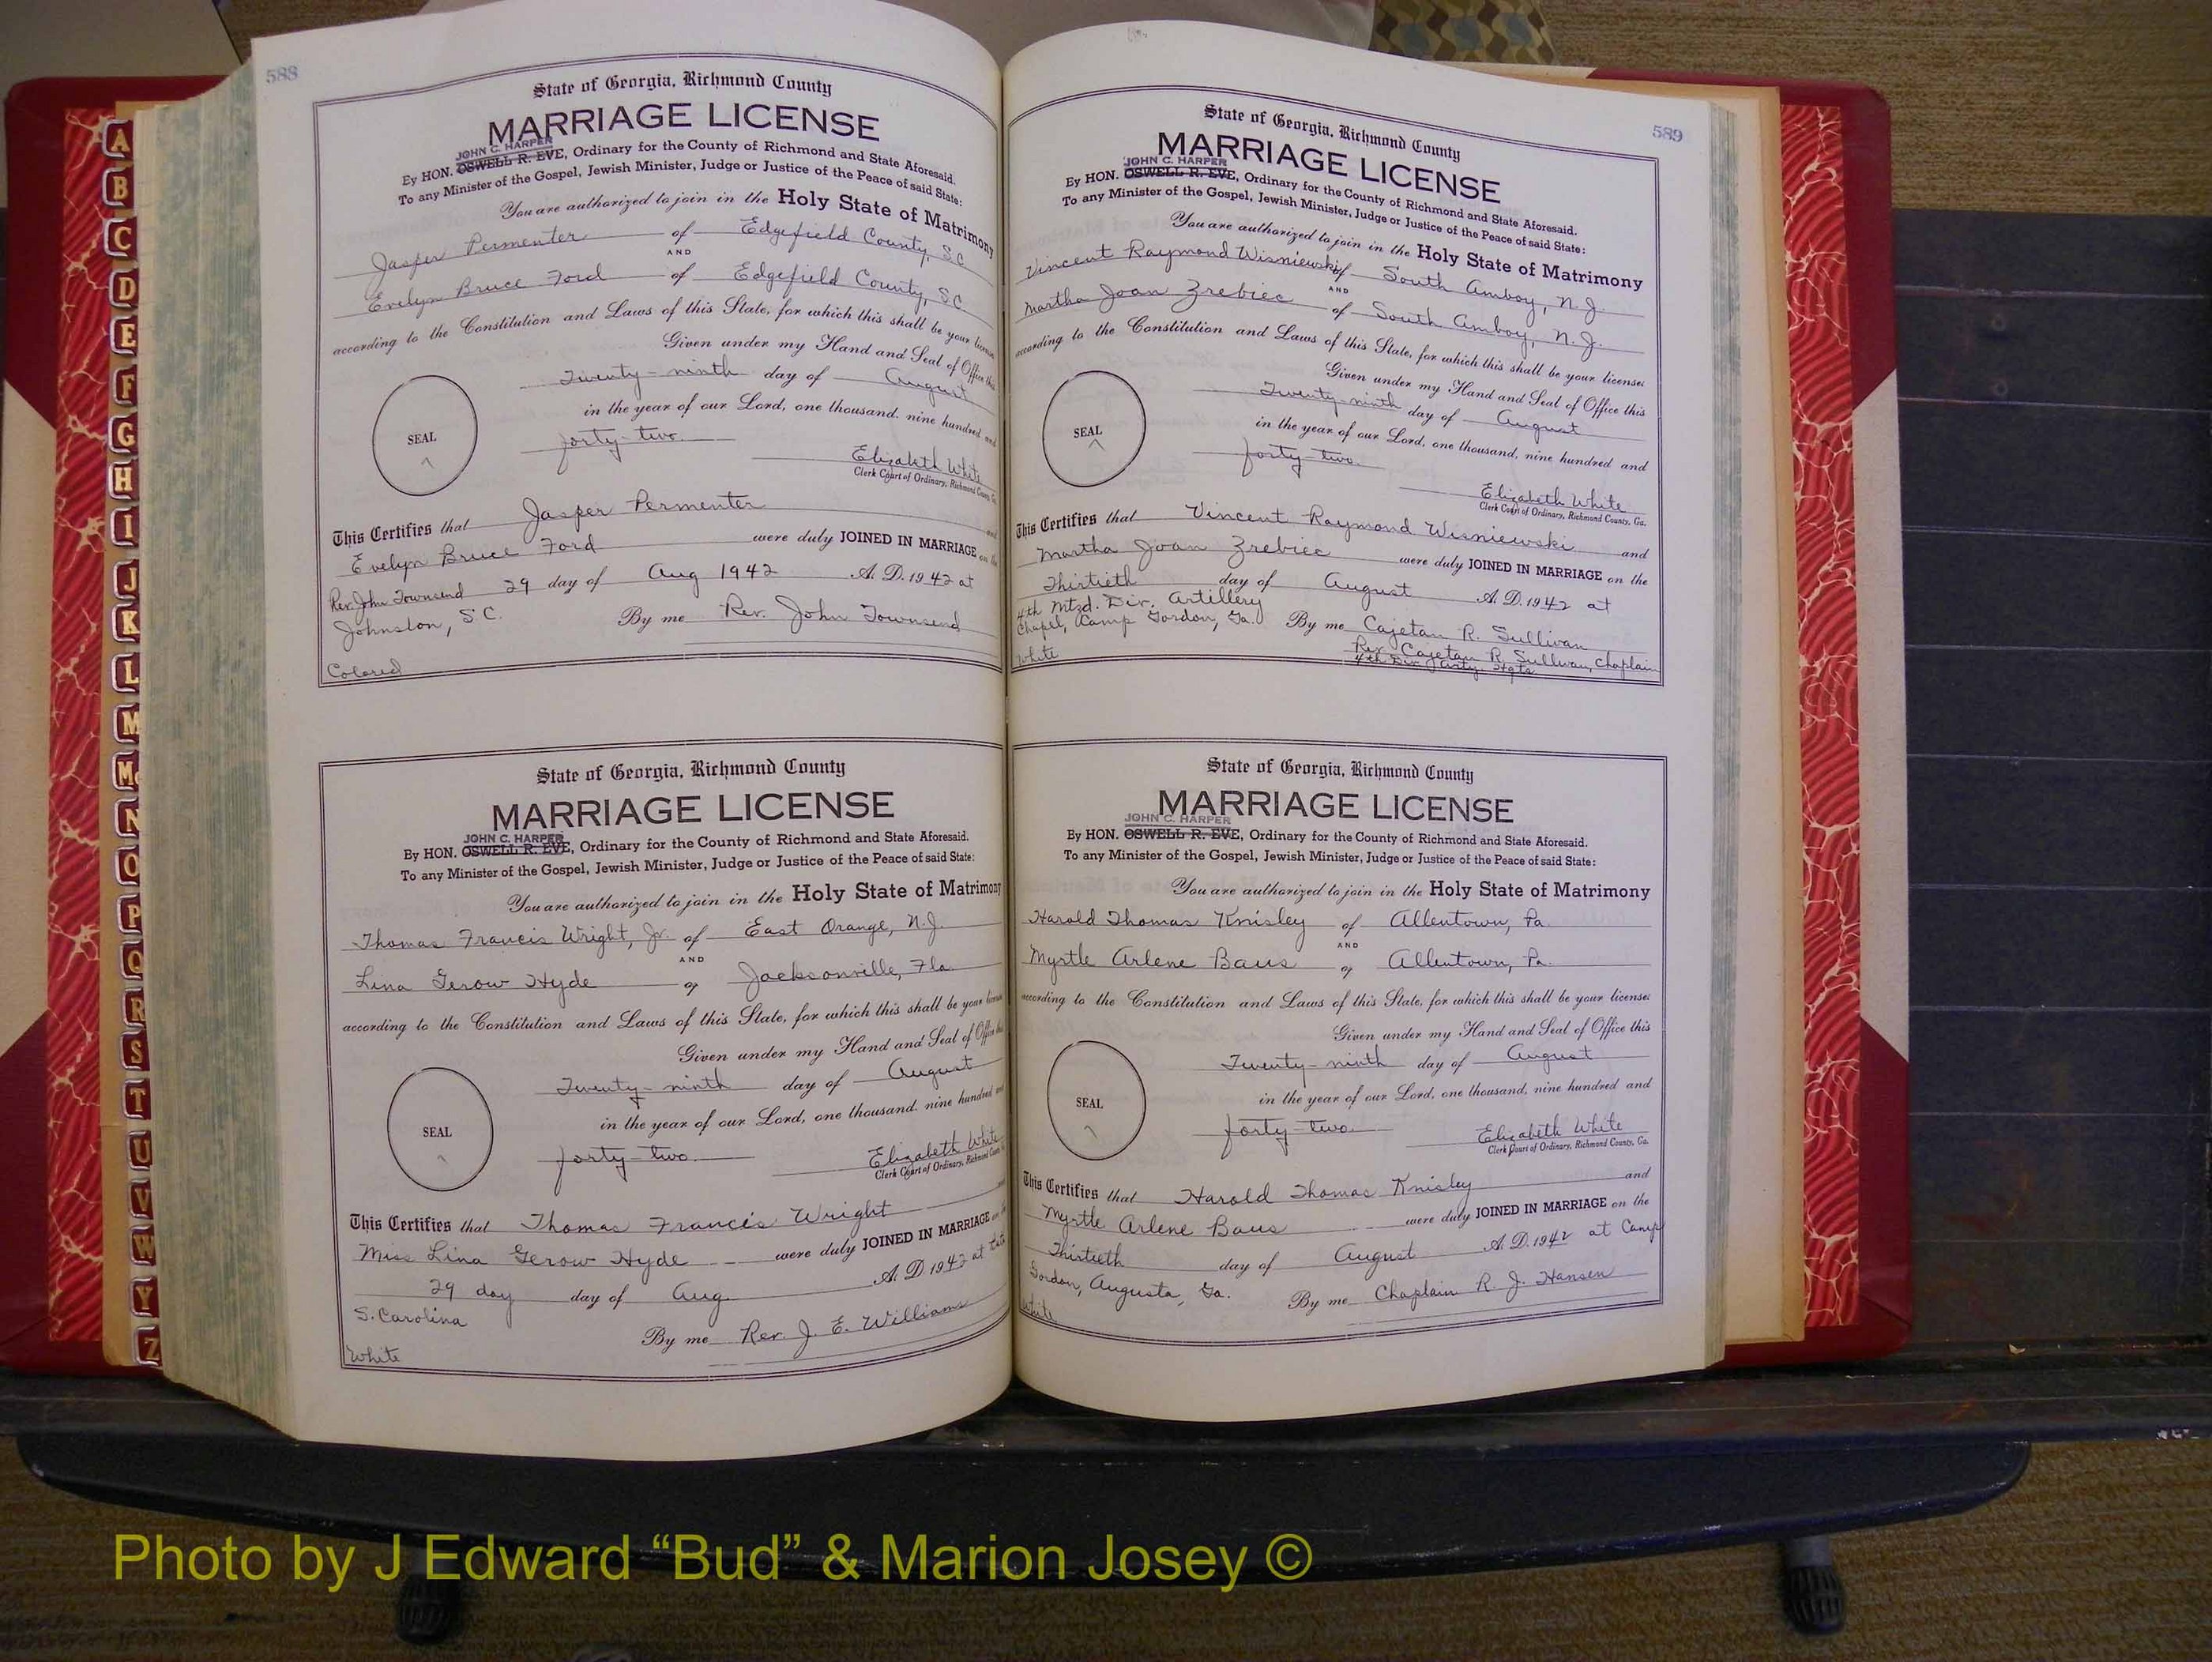 588
State of Georgia, Richmond County
MARRIAGE LICENSE
JOHN C. HARPER
By HON. OSWELL R. EVE, Ordinary for the County of Richmond and State Aforesaid.
To any Minister of the Gospel, Jewish Minister, Judge or Justice of the Peace of said State:
You are authorized to join in the Holy State of Matrimony
Jasper Permenter of Edgefield County, S.C
AND
Evelyn Bruce Ford of Edgefield County, S.C
according to the Constitution and Laws of this State, for which this shall be your license
Given under my Hand and Seal of Office this
Twenty-ninth day of August
in the year of our Lord, one thousand, nine hundred and
forty-two.
SEAL
Elizabeth White
Clerk Court of Ordinary, Richmond County, Ga.
This Certifies that Jasper Permenter and
Evelyn Bruce Ford were duly JOINED IN MARRIAGE on the
Rev. John Townsend 29 day of Aug 1942 A. D. 1942 at
Johnston, S.C. By me Rev. John Townsend
Colored
State of Georgia, Richmond County
MARRIAGE LICENSE
JOHN C. HARPER
By HON. OSWELL R. EVE, Ordinary for the County of Richmond and State Aforesaid.
To any Minister of the Gospel, Jewish Minister, Judge or Justice of the Peace of said State:
You are authorized to join in the Holy State of Matrimony
Thomas Francis Wright, Jr. of East Orange, N.J.
AND
Lina Gerow Hyde of Jacksonville, Fla.
according to the Constitution and Laws of this State, for which this shall be your license
Given under my Hand and Seal of Office this
Twenty-ninth day of August
in the year of our Lord, one thousand, nine hundred and
forty-two.
SEAL
Elizabeth White
Clerk Court of Ordinary, Richmond County
This Certifies that Thomas Francis Wright
Miss Lina Gerow Hyde were duly JOINED IN MARRIAGE on the
29 day day of Aug. A. D. 1942 at
S. Carolina
By me Rev. J. E. Williams
White
589
State of Georgia, Richmond County
MARRIAGE LICENSE
JOHN C. HARPER
By HON. OSWELL R. EVE, Ordinary for the County of Richmond and State Aforesaid.
To any Minister of the Gospel, Jewish Minister, Judge or Justice of the Peace of said State:
You are authorized to join in the Holy State of Matrimony
Vincent Raymond Wisniewski of South Amboy, N.J.
AND
Martha Joan Zrebiec of South Amboy, N.J.
according to the Constitution and Laws of this State, for which this shall be your license:
Given under my Hand and Seal of Office this
Twenty-ninth day of August
in the year of our Lord, one thousand, nine hundred and
forty-two.
SEAL
Elizabeth White
Clerk Court of Ordinary, Richmond County, Ga.
This Certifies that Vincent Raymond Wisniewski and
Martha Joan Zrebiec were duly JOINED IN MARRIAGE on the
Thirtieth day of August A. D. 1942 at
4th Mtzd. Div. Artillery
Chapel, Camp Gordon, Ga. By me Cajetan R. Sullivan
Rev. Cajetan R. Sullivan, Chaplain
4th Div. Arty. Hqts
White
State of Georgia, Richmond County
MARRIAGE LICENSE
JOHN C. HARPER
By HON. OSWELL R. EVE, Ordinary for the County of Richmond and State Aforesaid.
To any Minister of the Gospel, Jewish Minister, Judge or Justice of the Peace of said State:
You are authorized to join in the Holy State of Matrimony
Harold Thomas Knisley of Allentown, Pa.
AND
Myrtle Arlene Baus of Allentown, Pa.
according to the Constitution and Laws of this State, for which this shall be your license:
Given under my Hand and Seal of Office this
Twenty-ninth day of August
in the year of our Lord, one thousand, nine hundred and
forty-two.
SEAL
Elizabeth White
Clerk Court of Ordinary, Richmond County, Ga.
This Certifies that Harold Thomas Knisley and
Myrtle Arlene Baus were duly JOINED IN MARRIAGE on the
Thirtieth day of August A. D. 1942 at Camp
Gordon, Augusta, Ga. By me Chaplain R. J. Hansen
White
A
B
C
D
E
F
G
H
I
J
K
L
M
Mc
N
O
P
Q
R
S
T
U
V
W
Y
Z
Photo by J Edward “Bud” & Marion Josey ©